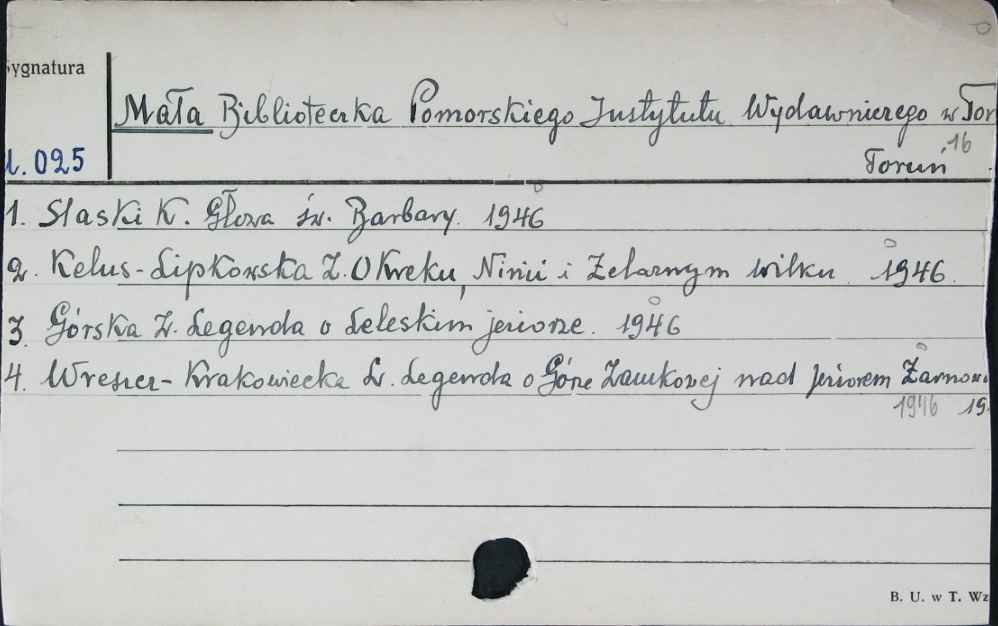 Sygnatura
Mała Biblioteczka Pomorskiego Instytutu Wydawniczego w Tor
16
025 Toruń
1. Slaski K. Głowa św. Barbary. 1946
2. Kelus-Lipkowska Z. O Kreku, Ninii i Żelaznym wilku. 1946.
3. Górska Z. Legenda o Leleskim jeziorze. 1946
4. Krakowiecka L. Legenda o Górze Zamkowej nad jeziorem Żarnow
1946 19
B. U. w T. Wz